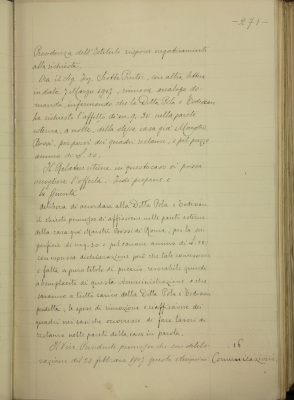 - 271 -
Presidenza dell'Istituto rispose negativamente
alla richiesta.
Ora il Sig. Ing. Pinto, con altra lettera
in data 7 Marzo 1917, rinnova analoga do-
manda, informando che la Ditta Pola e Todescan
ha richiesto l'affitto di mq. 30 sulla parete
esterna, a notte, della stessa casa già Maestri
Rossi, per porvi dei quadri reclame, e pel prezzo
annuo di L. 50.
Il Relatore ritiene in questo caso si possa
accogliere l'offerta. Indi propone e
La Giunta
delibera di accordare alla Ditta Pola e Todescan
il chiesto permesso di affissione sulla parete esterna
della casa già Maestri Rossi di Roma, per la su-
perficie di mq. 30 e pel canone annuo di L. 50,
con espressa dichiarazione però che tale concessione
è fatta a puro titolo di precario revocabile quindi
a beneplacito di questa Amministrazione e che
saranno a tutto carico della Ditta Pola e Todescan
predetta, le spese di rimozione e riaffissione dei
quadri nei casi che occorresse di fare lavori di
restauro nelle pareti della casa in parola.
Il Vice Presidente premesso che con delibe-
razione del 28 febbraio 1917 questa
16
Comunicazioni